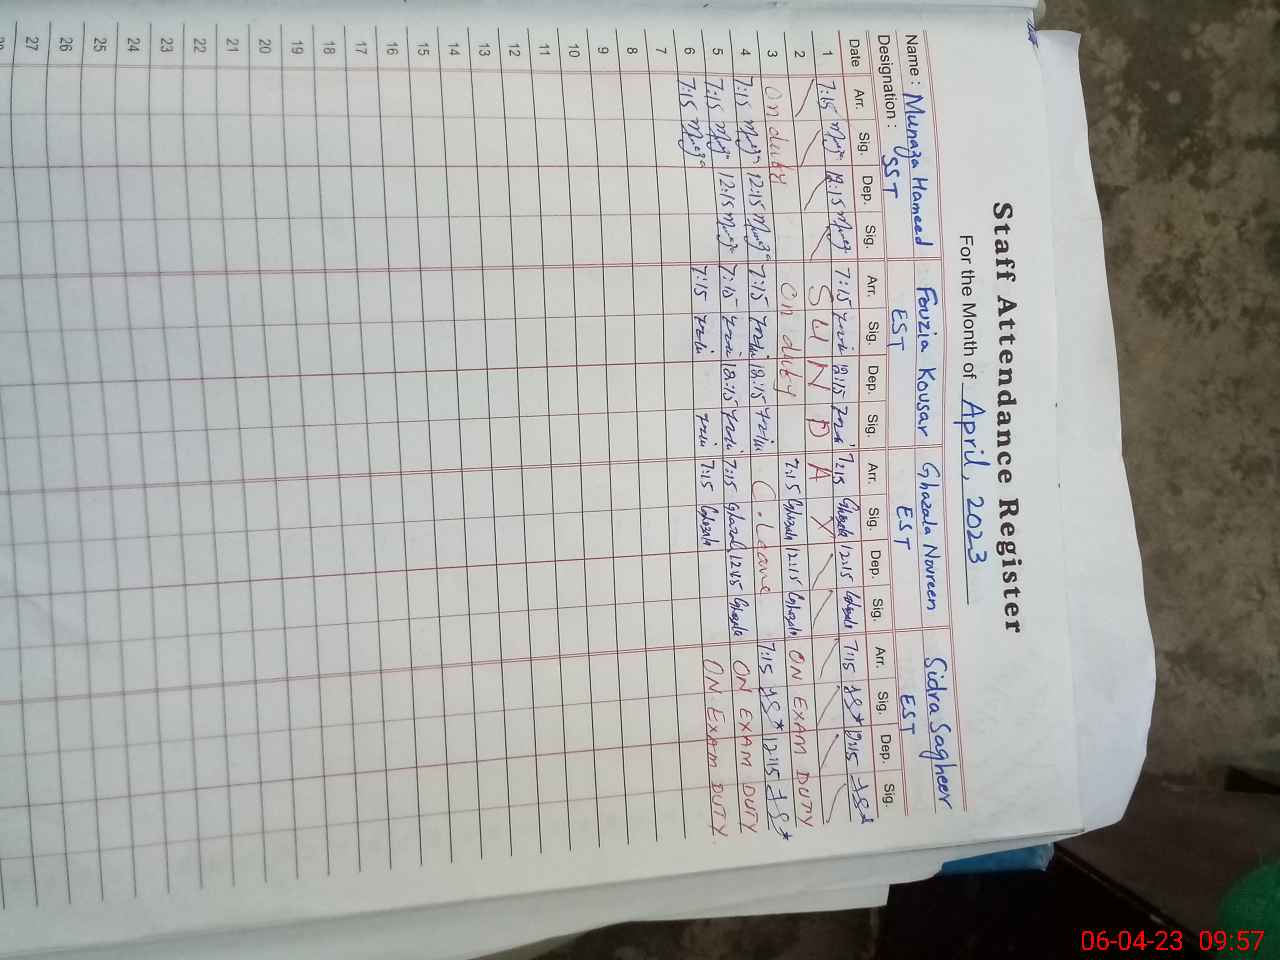 Staff Attendance Register
For the Month of April, 2023
Name : Munaza Hameed Fouzia Kousar Ghazala Noureen Sidra Sagheer
Designation : SST EST EST EST
Date Arr. Sig. Dep. Sig. Arr. Sig. Dep. Sig. Arr. Sig. Dep. Sig. Arr. Sig. Dep. Sig.
1 7:15 12:15 7:15 12:15 7:15 Ghazala 12:15 Ghazala 7:15 12:15
2 SUNDAY
3 On duty On duty 7:15 Ghazala 12:15 Ghazala ON EXAM DUTY
4 7:15 12:15 7:15 12:15 C. Leave 7:15 12:15
5 7:15 12:15 7:15 12:15 7:15 Ghazala 12:15 Ghazala ON EXAM DUTY
6 7:15 7:15 7:15 Ghazala ON EXAM DUTY.
7
8
9
10
11
12
13
14
15
16
17
18
19
20
21
22
23
24
25
26
27
06-04-23 09:57